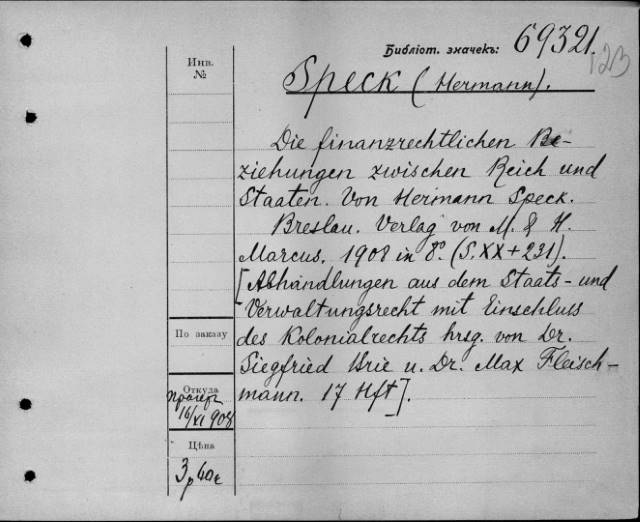 Библіот. значекъ: 69321.
123
Инв.
№
Speck (Hermann).
Die finanzrechtlichen Be-
ziehungen zwischen Reich und
Staaten. Von Hermann Speck.
Breslau. Verlag von M. & H.
Marcus. 1908 in 8º. (S. XX + 231).
[Abhandlungen aus dem Staats- und
Verwaltungsrecht mit Einschluss
des Kolonialrechts hrsg. von Dr.
Siegfried Brie u. Dr. Max Fleisch-
mann. 17 Hft].
По заказу
Откуда
16/XI 908
Цѣна
3 р 40 к